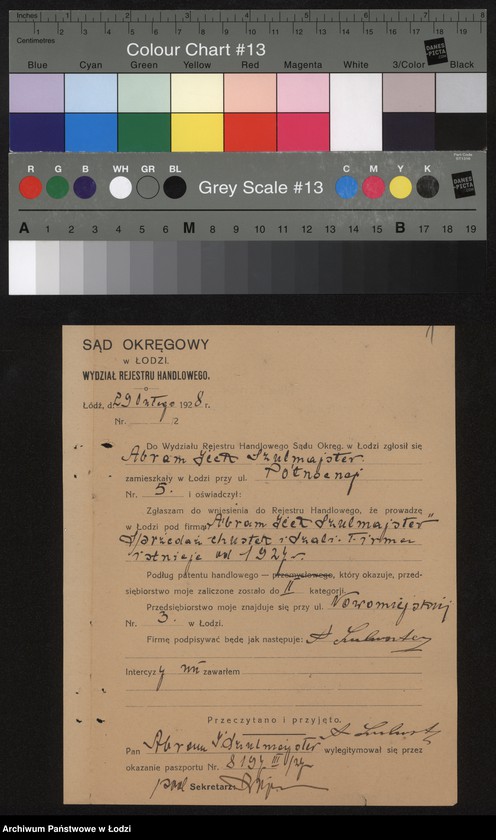 Inches 1 2 3 4 5 6 7 8
Centimetres 1 2 3 4 5 6 7 8 9 10 11 12 13 14 15 16 17 18 19
Colour Chart #13
DANES-PICTA
Blue Cyan Green Yellow Red Magenta White 3/Color Black
R G B WH GR BL Grey Scale #13 C M Y K
DANES-PICTA
A 1 2 3 4 5 6 M 8 9 10 11 12 13 14 15 B 17 18 19
SĄD OKRĘGOWY
W ŁODZI.
WYDZIAŁ REJESTRU HANDLOWEGO.
Łódź, d. 29 lutego 1928 r.
Nr. /2
Do Wydziału Rejestru Handlowego Sądu Okręg. w Łodzi zgłosił się
Abram Icek Szulmajster
zamieszkały w Łodzi przy ul. Północnej
Nr. 5. i oświadczył:
Zgłaszam do wniesienia do Rejestru Handlowego, że prowadzę
w Łodzi pod firmą „Abram Icek Szulmajster"
Sprzedaż chustek i szali. Firma
istnieje od 1927 r.
Podług patentu handlowego — przemysłowego, który okazuje, przed-
siębiorstwo moje zaliczone zostało do II kategorji.
Przedsiębiorstwo moje znajduje się przy ul. Nowomiejskiej
Nr. 3. w Łodzi.
Firmę podpisywać będę jak następuje:
Intercyzy nie zawarłem
Przeczytano i przyjęto.
Pan Abram I Szulmajster wylegitymował się przez
okazanie paszportu Nr.
Sekretarz:
Archiwum Państwowe w Łodzi